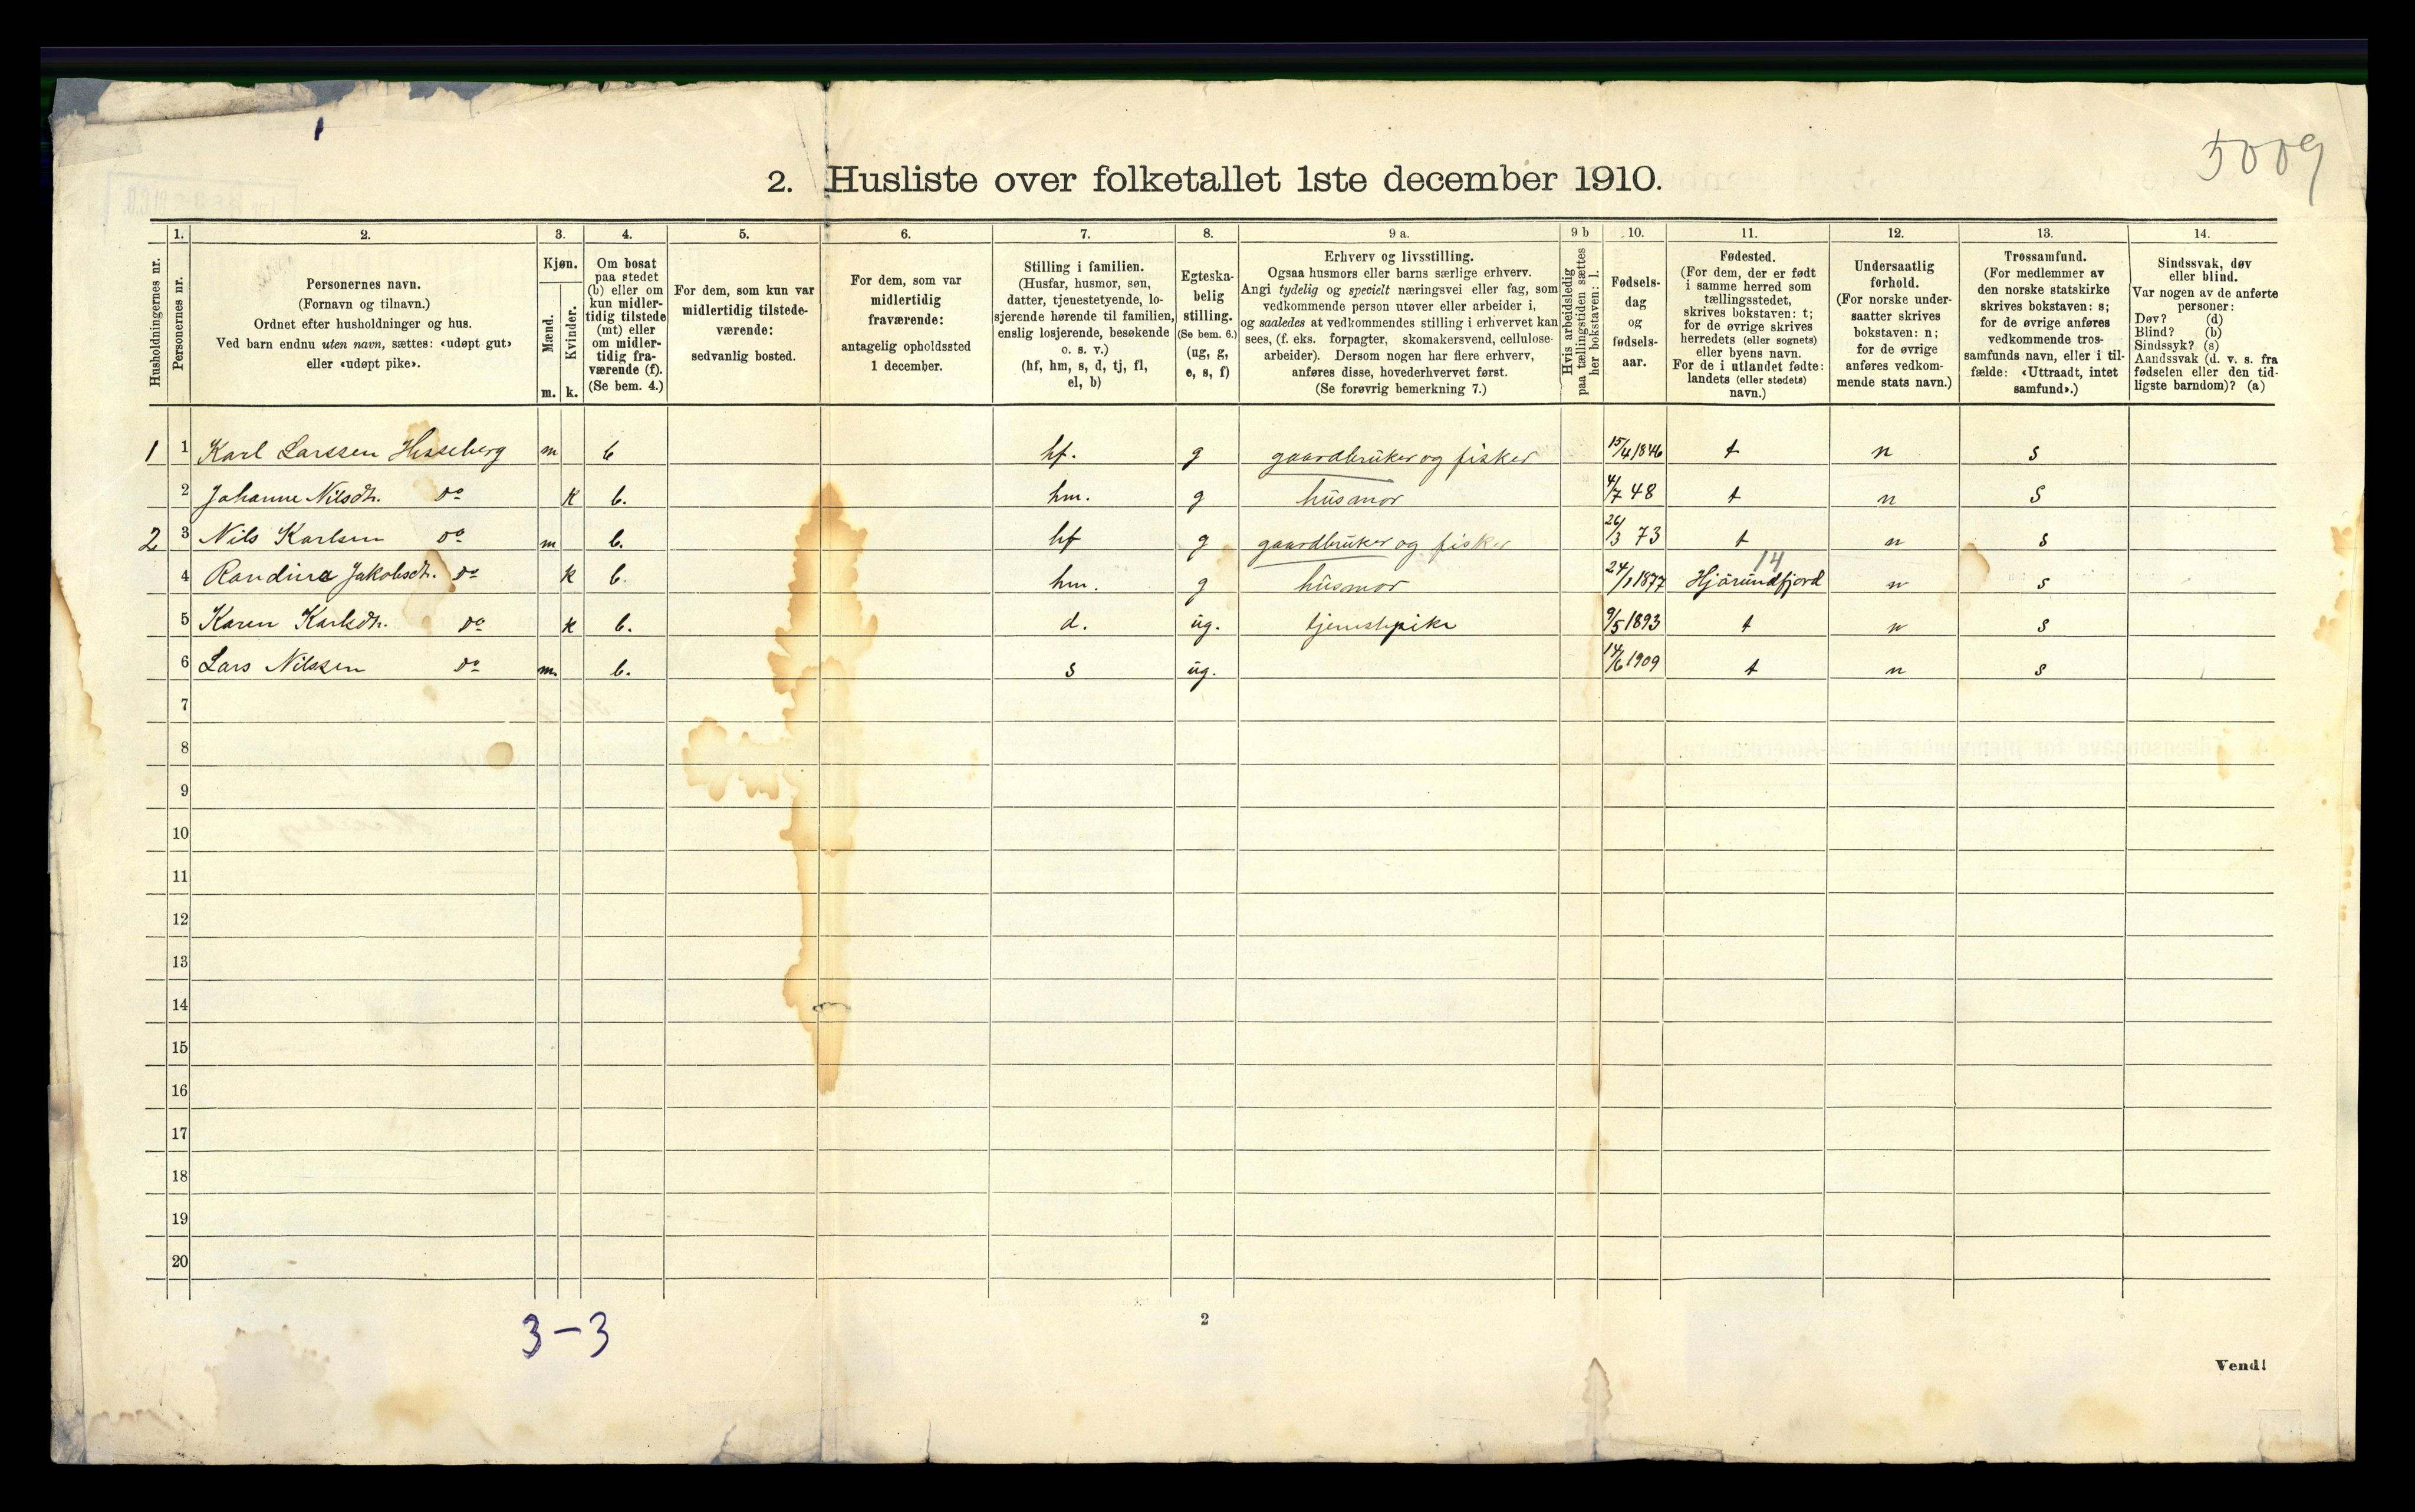 5009
2. Husliste over folketallet 1ste december 1910.
Husholdningernes nr.
1.
Personernes nr.
2.
Personernes navn.
(Fornavn og tilnavn.)
Ordnet efter husholdninger og hus.
Ved barn endnu uten navn, sættes: «udøpt gut»
eller «udøpt pike».
3.
Kjøn.
Mænd.
Kvinder.
m. k.
4.
Om bosat
paa stedet
(b) eller om
kun midler-
tidig tilstede
(mt) eller
om midler-
tidig fra-
værende (f).
(Se bem. 4.)
5.
For dem, som kun var
midlertidig tilstede-
værende:
sedvanlig bosted.
6.
For dem, som var
midlertidig
fraværende:
antagelig opholdssted
1 december.
7.
Stilling i familien.
(Husfar, husmor, søn,
datter, tjenestetyende, lo-
sjerende hørende til familien,
enslig losjerende, besøkende
o. s. v.)
(hf, hm, s, d, tj, fl,
el, b)
8.
Egteska-
belig
stilling.
(Se bem. 6.)
(ug, g,
e, s, f)
9 a.
Erhverv og livsstilling.
Ogsaa husmors eller barns særlige erhverv.
Angi tydelig og specielt næringsvei eller fag, som
vedkommende person utøver eller arbeider i,
og saaledes at vedkommendes stilling i erhvervet kan
sees, (f. eks. forpagter, skomakersvend, cellulose-
arbeider). Dersom nogen har flere erhverv,
anføres disse, hovederhvervet først.
(Se forøvrig bemerkning 7.)
9 b
Hvis arbeidsledig
paa tællingstiden sættes
her bokstaven: l.
10.
Fødsels-
dag
og
fødsels-
aar.
11.
Fødested.
(For dem, der er født
i samme herred som
tællingsstedet,
skrives bokstaven: t;
for de øvrige skrives
herredets (eller sognets)
eller byens navn.
For de i utlandet fødte:
landets (eller stedets)
navn.)
12.
Undersaatlig
forhold.
(For norske under-
saatter skrives
bokstaven: n;
for de øvrige
anføres vedkom-
mende stats navn.)
13.
Trossamfund.
(For medlemmer av
den norske statskirke
skrives bokstaven: s;
for de øvrige anføres
vedkommende tros-
samfunds navn, eller i til-
fælde: «Uttraadt, intet
samfund».)
14.
Sindssvak, døv
eller blind.
Var nogen av de anførte
personer:
Døv? (d)
Blind? (b)
Sindssyk? (s)
Aandssvak (d. v. s. fra
fødselen eller den tid-
ligste barndom)? (a)
1 1 Karl Larssen Hesseberg m b hf. g gaardbruker og fisker 15/4 1846 t n s
2 Johanne Nilsdtr. do k b. hm. g husmor 4/7 48 t n s
2 3 Nils Karlsen do m b. hf g gaardbruker og fisker 26/3 73 t n s
14
4 Randina Jakobsdtr. do k b. hm. g husmor 24/1 1877 Hjörundfjord n s
5 Karen Karlsdtr. do k b. d. ug. tjenestepike 9/5 1893 t n s
6 Lars Nilssen do m. b. s ug. 14/6 1909 t n s
7
8
9
10
11
12
13
14
15
16
17
18
19
20
3-3
2
Vend!